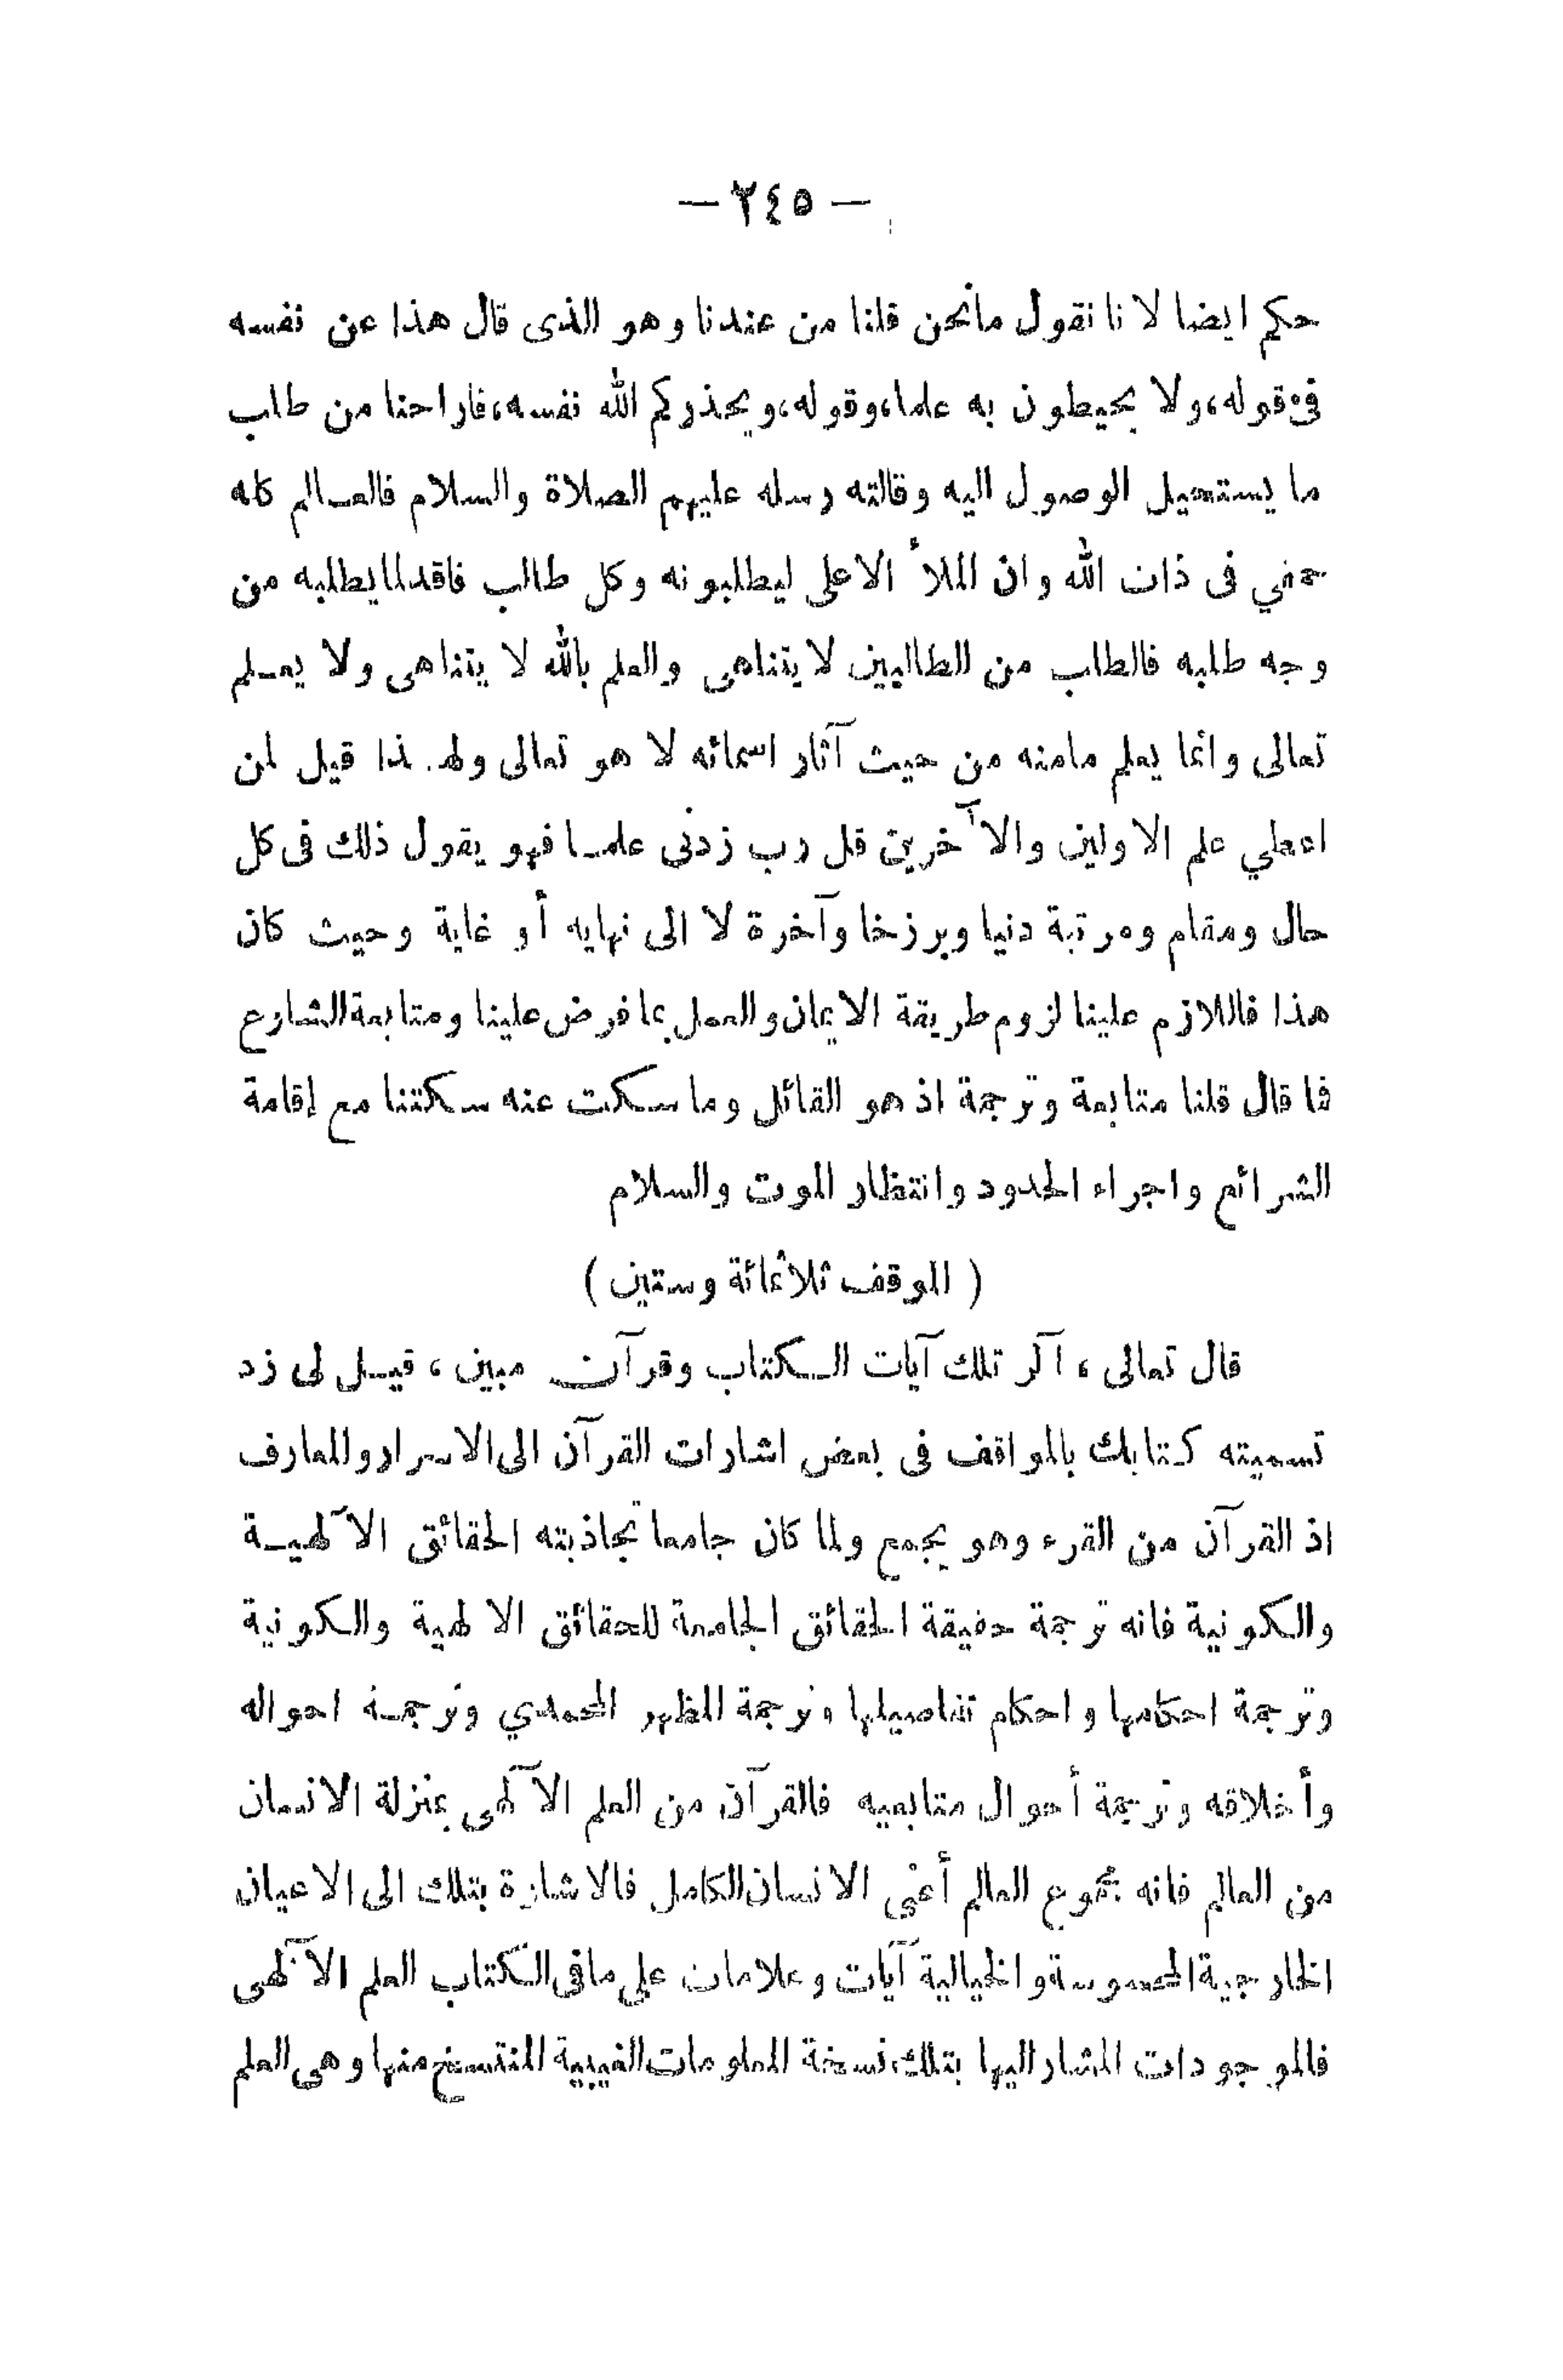 — ٢٤٥ —
حكم ايضا لا نا نقول مانحن قلنا من عندنا وهو الذى قال هذا عن نفسه
فى قوله، ولا يحيطون به علما، وقوله، ويحذركم الله نفسه، فاراحنا من طلب
ما يستحيل الوصول اليه وقالته رسله عليهم الصلاة والسلام فالعالم كله
حمقي فى ذات الله وان الملأ الاعلى ليطلبونه وكل طالب فاقد لما يطلبه من
وجه طلبه فالطلب من الطالبين لا يتناهى والعلم بالله لا يتناهى ولا يعلم
تعالى وانما يعلم مامنه من حيث آثار اسمائه لا هو تعالى ولهذا قيل لمن
اعطي علم الاولين والآخرين قل رب زدنى علما فهو يقول ذلك فى كل
حال ومقام ومرتبة دنيا وبرزخا وآخرة لا الى نهايه أو غاية وحيث كان
هذا فاللازم علينا لزوم طريقة الايمان والعمل بما فرض علينا ومتابعة الشارع
فما قال قلنا متابعة وترجمة اذ هو القائل وما سكت عنه سكتنا مع إقامة
الشرائع واجراء الحدود وانتظار الموت والسلام
( الموقف ثلاثمائة وستين )
قال تعالى ، آلر تلك آيات الكتاب وقرآن مبين ، قيل لى زد
تسميته كتابك بالمواقف فى بعض اشارات القرآن الى الاسرار والمعارف
اذ القرآن من القرء وهو يجمع ولما كان جامعا تجاذبته الحقائق الآلهية
والكونية فانه ترجمة حقيقة الحقائق الجامعة للحقائق الالهية والكونية
وترجمة احكامها واحكام تفاصيلها وترجمة المظهر المحمدي وترجمة احواله
وأخلاقه وترجمة أحوال متابعيه فالقرآن من العلم الآلهى بمنزلة الانسان
من العالم فانه مجموع العالم أعنى الانسان الكامل فالاشارة بتلك الى الاعيان
الخارجية المحسوسة والخيالية آيات وعلامات على مافى الكتاب العلم الآلهى
فالموجودات المشار اليها بتلك نسخة المعلومات الغيبية المنتسخ منها وهى العلم